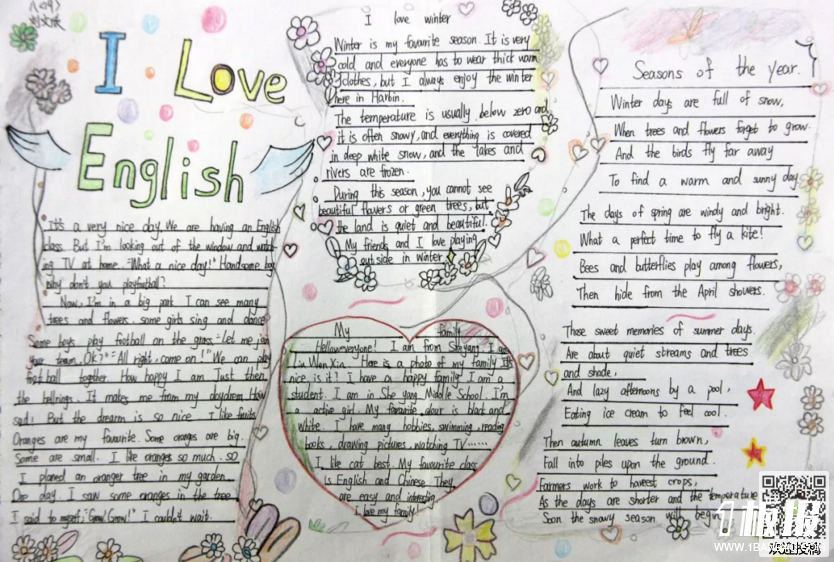 I Love
English
It's a very nice day. We are having an English
class. But I'm looking out of the window and watch-
ing TV at home. "What a nice day!" Handsome boy
why don't you play football?
Now, I'm in a big park. I can see many
trees and flowers. some girls sing and dance
Some boys play football on the grass. "Let me join
your team, Ok?" "All right, come on!" We can play
football together How happy I am Just then
the bell rings. It makes me from my daydream How
sad! But the drearm is so nice I like fruits
Oranges are my favourite. Some oranges are big.
Some are small. I like oranges so much. so
I planed an oranger tree in my garden
One day. I saw some oranges in the tree
I said to myself, "Grow! Grow!" I couldn't wait.
I love winter
Winter is my favorite season. It is very
cold and everyone has to wear thick warm
clothes, but I always enjoy the winter
here in Harbin.
The temperature is usually below zero and
it is often snowy, and everything is covered
in deep white snow, and the lakes and
rivers are frozen.
During this season, you cannot see
beautiful flowers or green trees, but
the land is quiet and beautiful.
My friends and I love playing
outside in winter
My family
Hello everyone! I am from
in Wen Xin. Here is a photo of my family It's
nice, is it? I have a happy family I am a
student. I am in She yang Middle School. I'm
a active girl. My favorite colour is black and
white. I have many hobbies, swimming, reading
books, drawing pictures, watching TV......
I like cat best. My favourite class
is English and Chinese. They
are easy and interesting.
I love my family!
Seasons of the year.
Winter days are full of snow,
When trees and flowers forget to grow.
And the birds fly far away
To find a warm and sunny day
The days of spring are windy and bright.
What a perfect time to fly a kite!
Bees and butterflies play among flowers,
Then hide from the April showers.
Those sweet memories of summer days,
Are about quiet streams and trees
and shade,
And lazy afternoons by a pool,
Eating ice cream to feel cool.
Then autumn leaves turn brown,
Fall into piles upon the ground.
Farmers work to havest crops,
As the days are shorter and the temperature
Soon the snowy season will begin
1板报
WWW.1BANBAO.COM
欢迎投稿